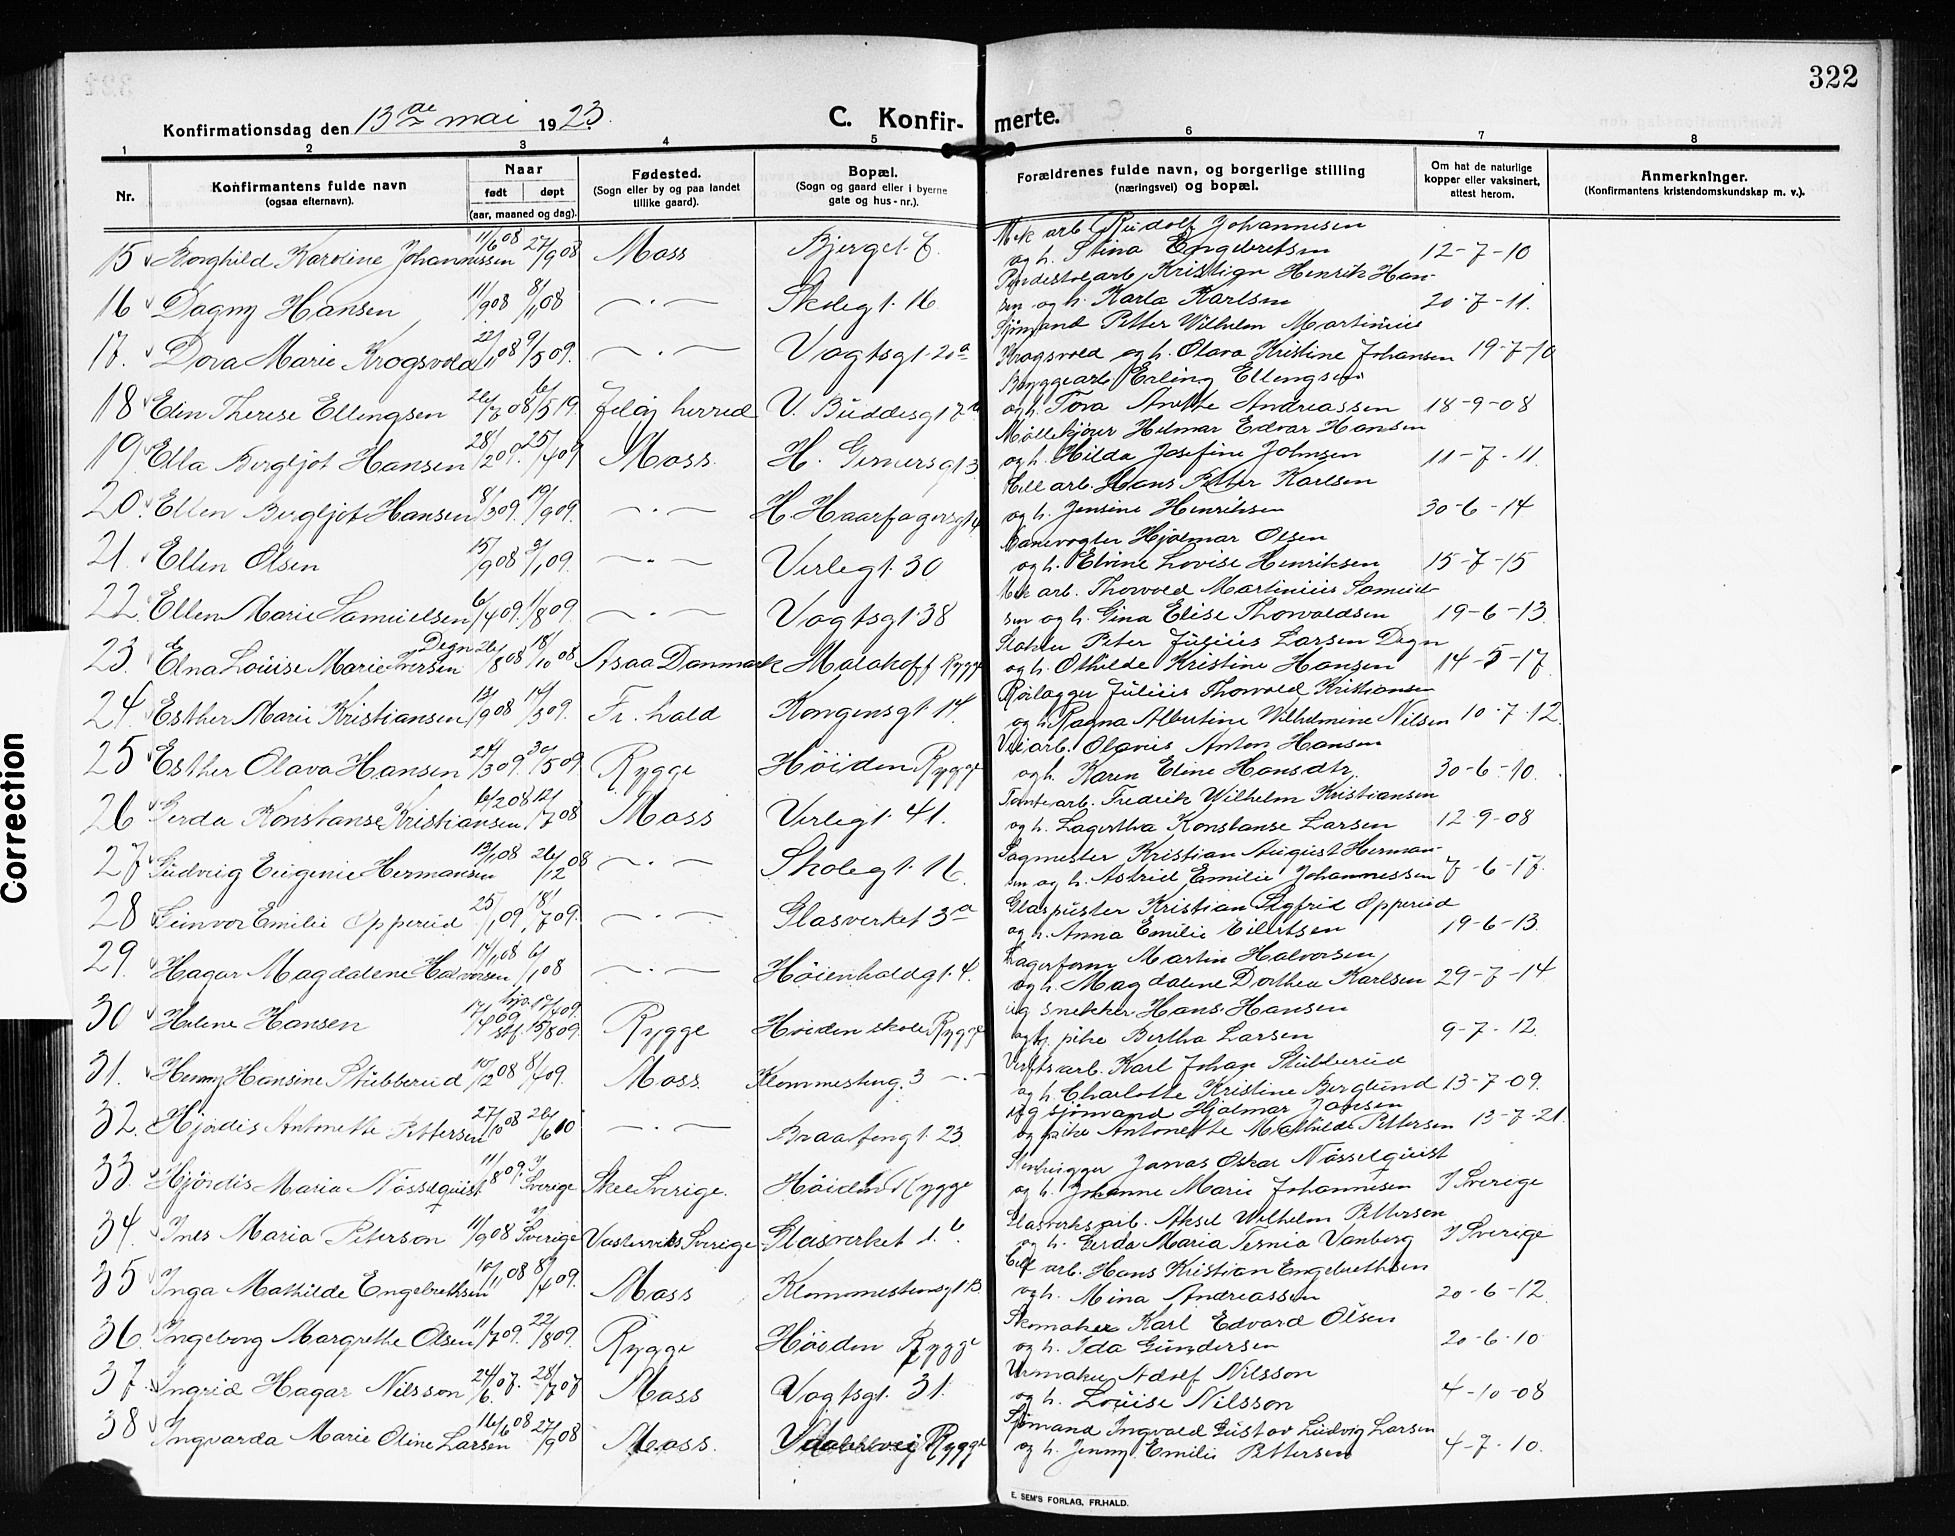 322
Konfirmationsdag den 13de mai 1923.
C. Konfirmerte.
1 2 3 4 5 6 7 8
Nr.
Konfirmantens fulde navn
(ogsaa efternavn).
Naar
født døpt
(aar, maaned og dag).
Fødested.
(Sogn eller by og paa landet
tillike gaard).
Bopæl.
(Sogn og gaard eller i byerne
gate og hus-nr.).
Forældrenes fulde navn, og borgerlige stilling
(næringsvei) og bopæl.
Om hat de naturlige
kopper eller vaksinert,
attest herom.
Anmerkninger.
(Konfirmantens kristendomskundskap m. v.).
15 Borghild Karoline Johannessen 11/6 08 27/9 08 Moss Bjerget 7.
Mek arb Rudolf Johannesen
og h. Stina Engebretsen 12-7-10
16 Dagny Hansen 11/9 08 8/1 08 —·— Skolegt. 16
Kristian Henrik Han-
sen og h. Karla Karlsen 20-7-11.
17. Dora Marie Krogsvold 22/11 08 9/5 09. —·— Vogtsgt. 20a
Sjømand Petter Wilhelm Martinius
Krogsvold og h. Olava Kristine Johansen 19-7-10
18 Elin Therese Ellengsen 26/7 08 6/5 19. Jeløy herred V. Buddesgt 7b
Bryggearb Erling Ellengsen
og h. Tora Anette Andreassen 18-9-08
19. Ella Bergljot Hansen 28/2 09. 25/4 09 Moss. H. Gernersgt 3
Møllekjører Helmar Edvar Hansen
og h. Hilda Josefine Johnsen 11-7-11.
20. Ellen Bergljot Hansen 8/3 09. 19/9 09. —·— H. Haarfagersgt 4
Cell arb. Hans Petter Karlsen
og h. Jensine Henriksen 30-6-14
21. Ellen Olsen 15/9 08 3/1 09. —·— Verlegt. 30
Banevogter Hjalmar Olsen
og h. Elvine Lovise Henriksen 15-7-15
22. Ellen Marie Samuelsen 6/4 09. 1/8 09. —·— Vogtsgt. 38
Mek arb. Thorvald Martinius Samuel-
sen og h. Gina Elise Thorvaldsen 19-6-13.
23. Elna Louise Marie Degn Iversen 26/8 08 18/10 08 Asaa Danmark Malakoff Rygge
Peter Julius Larsen Degn
og h. Othilde Kristine Hansen 14-5-17.
24. Esther Marie Kristiansen 13/9 08 14/3 09. Fr. hald Kongensgt. 14.
Rørlægger Julius Thorvald Kristiansen
og h. Ragna Albertine Wilhelmine Nilsen 10-7-12.
25 Esther Olava Hansen 21/3 09. 30/5 09 Rygge Høiden Rygge
Veiarb. Olavis Anton Hansen
og h. Karen Eline Hansdtr. 30-6-10.
26 Gerda Konstanse Kristiansen 6/2 08 12/7 08 Moss Verlegt. 41.
Tomtearb. Fredrik Wilhelm Kristiansen
og h. Lagertha Konstanse Larsen 12-9-08
27 Gudveig Eugenie Hermansen 13/1 08 26/12 08 —·— Skolegt. 16.
Sagmester Kristian August Herman-
sen og h. Astrid Emilie Johannessen 7-6-17.
28 Gunvor Emilie Opperud 25/1 09. 18/7 09. —·— Glasverket 3a
Glaspuster Kristian Sigfrid Opperud
og h. Anna Emilie Eilertsen 19-6-13.
29. Hagar Magdalene Halvorsen 14/1 08 6/1 08 —·— Høienhaldgt. 4.
Lagerform Martin Halvorsen,
og h. Magdalene Dorthea Karlsen 29-7-14.
30 Helene Hansen 17/4 09 hjd. 17/4 09. stf. 15/8 09. Rygge Høiden skole Rygge
ug snekker Hans Hansen
og ug. pike Bertha Larsen 9-7-12.
31. Henny Hansine Stubberud 10/12 08 8/4 09. Moss. Klommesteng. 3 —·—
Verftsarb. Karl Johan Stubberud
og h. Charlotte Kristine Berglund 13-7-09.
32. Hjørdis Antonette Pettersen 27/10 08 26/6 10 —·— Braatengt. 23.
ug sjømand Hjalmar Jansen
og pike Antonette Mathilde Pettersen 13-7-21.
33. Hjördis Maria Nösselquist 11/8 09. I Sverige Skee Sverige. Høiden Rygge
Stenhugger Jonas Oskar Nösselquist
og h. Johanne Marie Johannesen I Sverige
34. Ines Maria Peterson 11/9 08 I Sverige Vastervik Sverige Glasverket 1.b.
Glasverksarb. Aksel Wilhelm Pettersen
og h. Gerda Maria Ternia Vanberg I Sverige
35 Inga Mathilde Engebrethsen 10/11 08 8/4 09. Moss Klommestensgt 13.
Cell arb. Hans Kristian Engebrethsen
og h. Mina Andreassen 20-6-12.
36. Ingeborg Margrethe Olsen 11/7 09. 22/8 09. Rygge Høiden Rygge
Skomaker Karl Edvard Olsen
og h. Ida Gundersen 20-6-10
37. Ingrid Hagar Nilsson 24/6 07. 28/7 07 Moss Vogtsgt. 31.
Urmaker Adolf Nilsson
og h. Louise Nilsson 4-10-08
38 Ingvarda Marie Oline Larsen 16/6 08 27/9 08 Moss. Rygge
Sjømand Ingvald Gustav Ludvig Larsen
og h. Jenny Emilie Pettersen 4-7-10.
E. SEM'S FORLAG, FR.HALD.
Correction